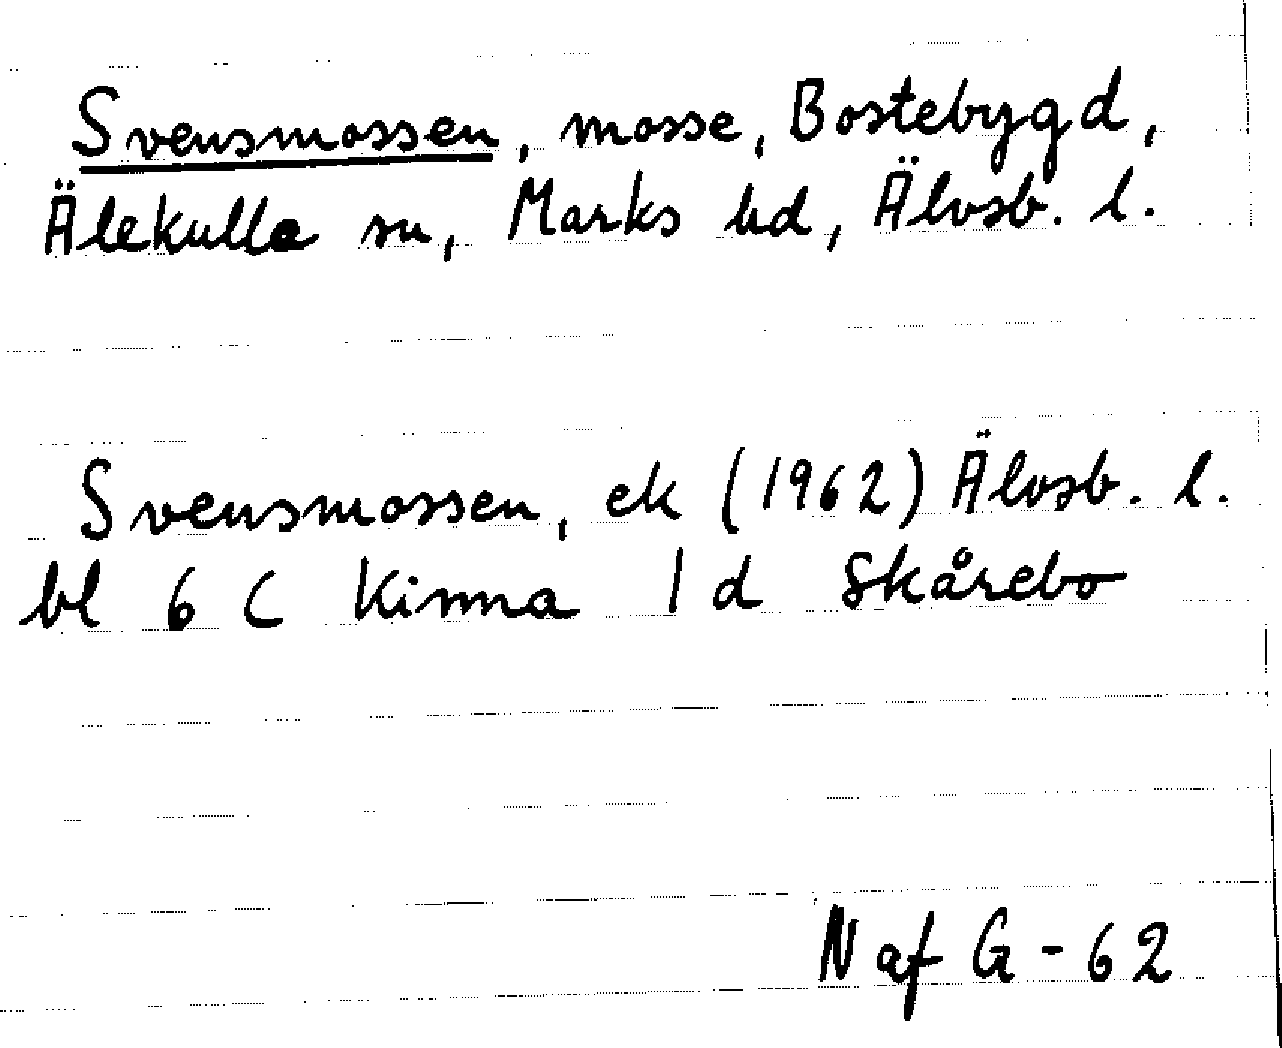 Svensmossen, mosse, Bostebygd,
Älekulla sn, Marks hd, Älvsb. l.
Svensmossen, ek (1962) Älvsb. l.
bl 6 C Kinna 1 d Skårebo
N af G - 62